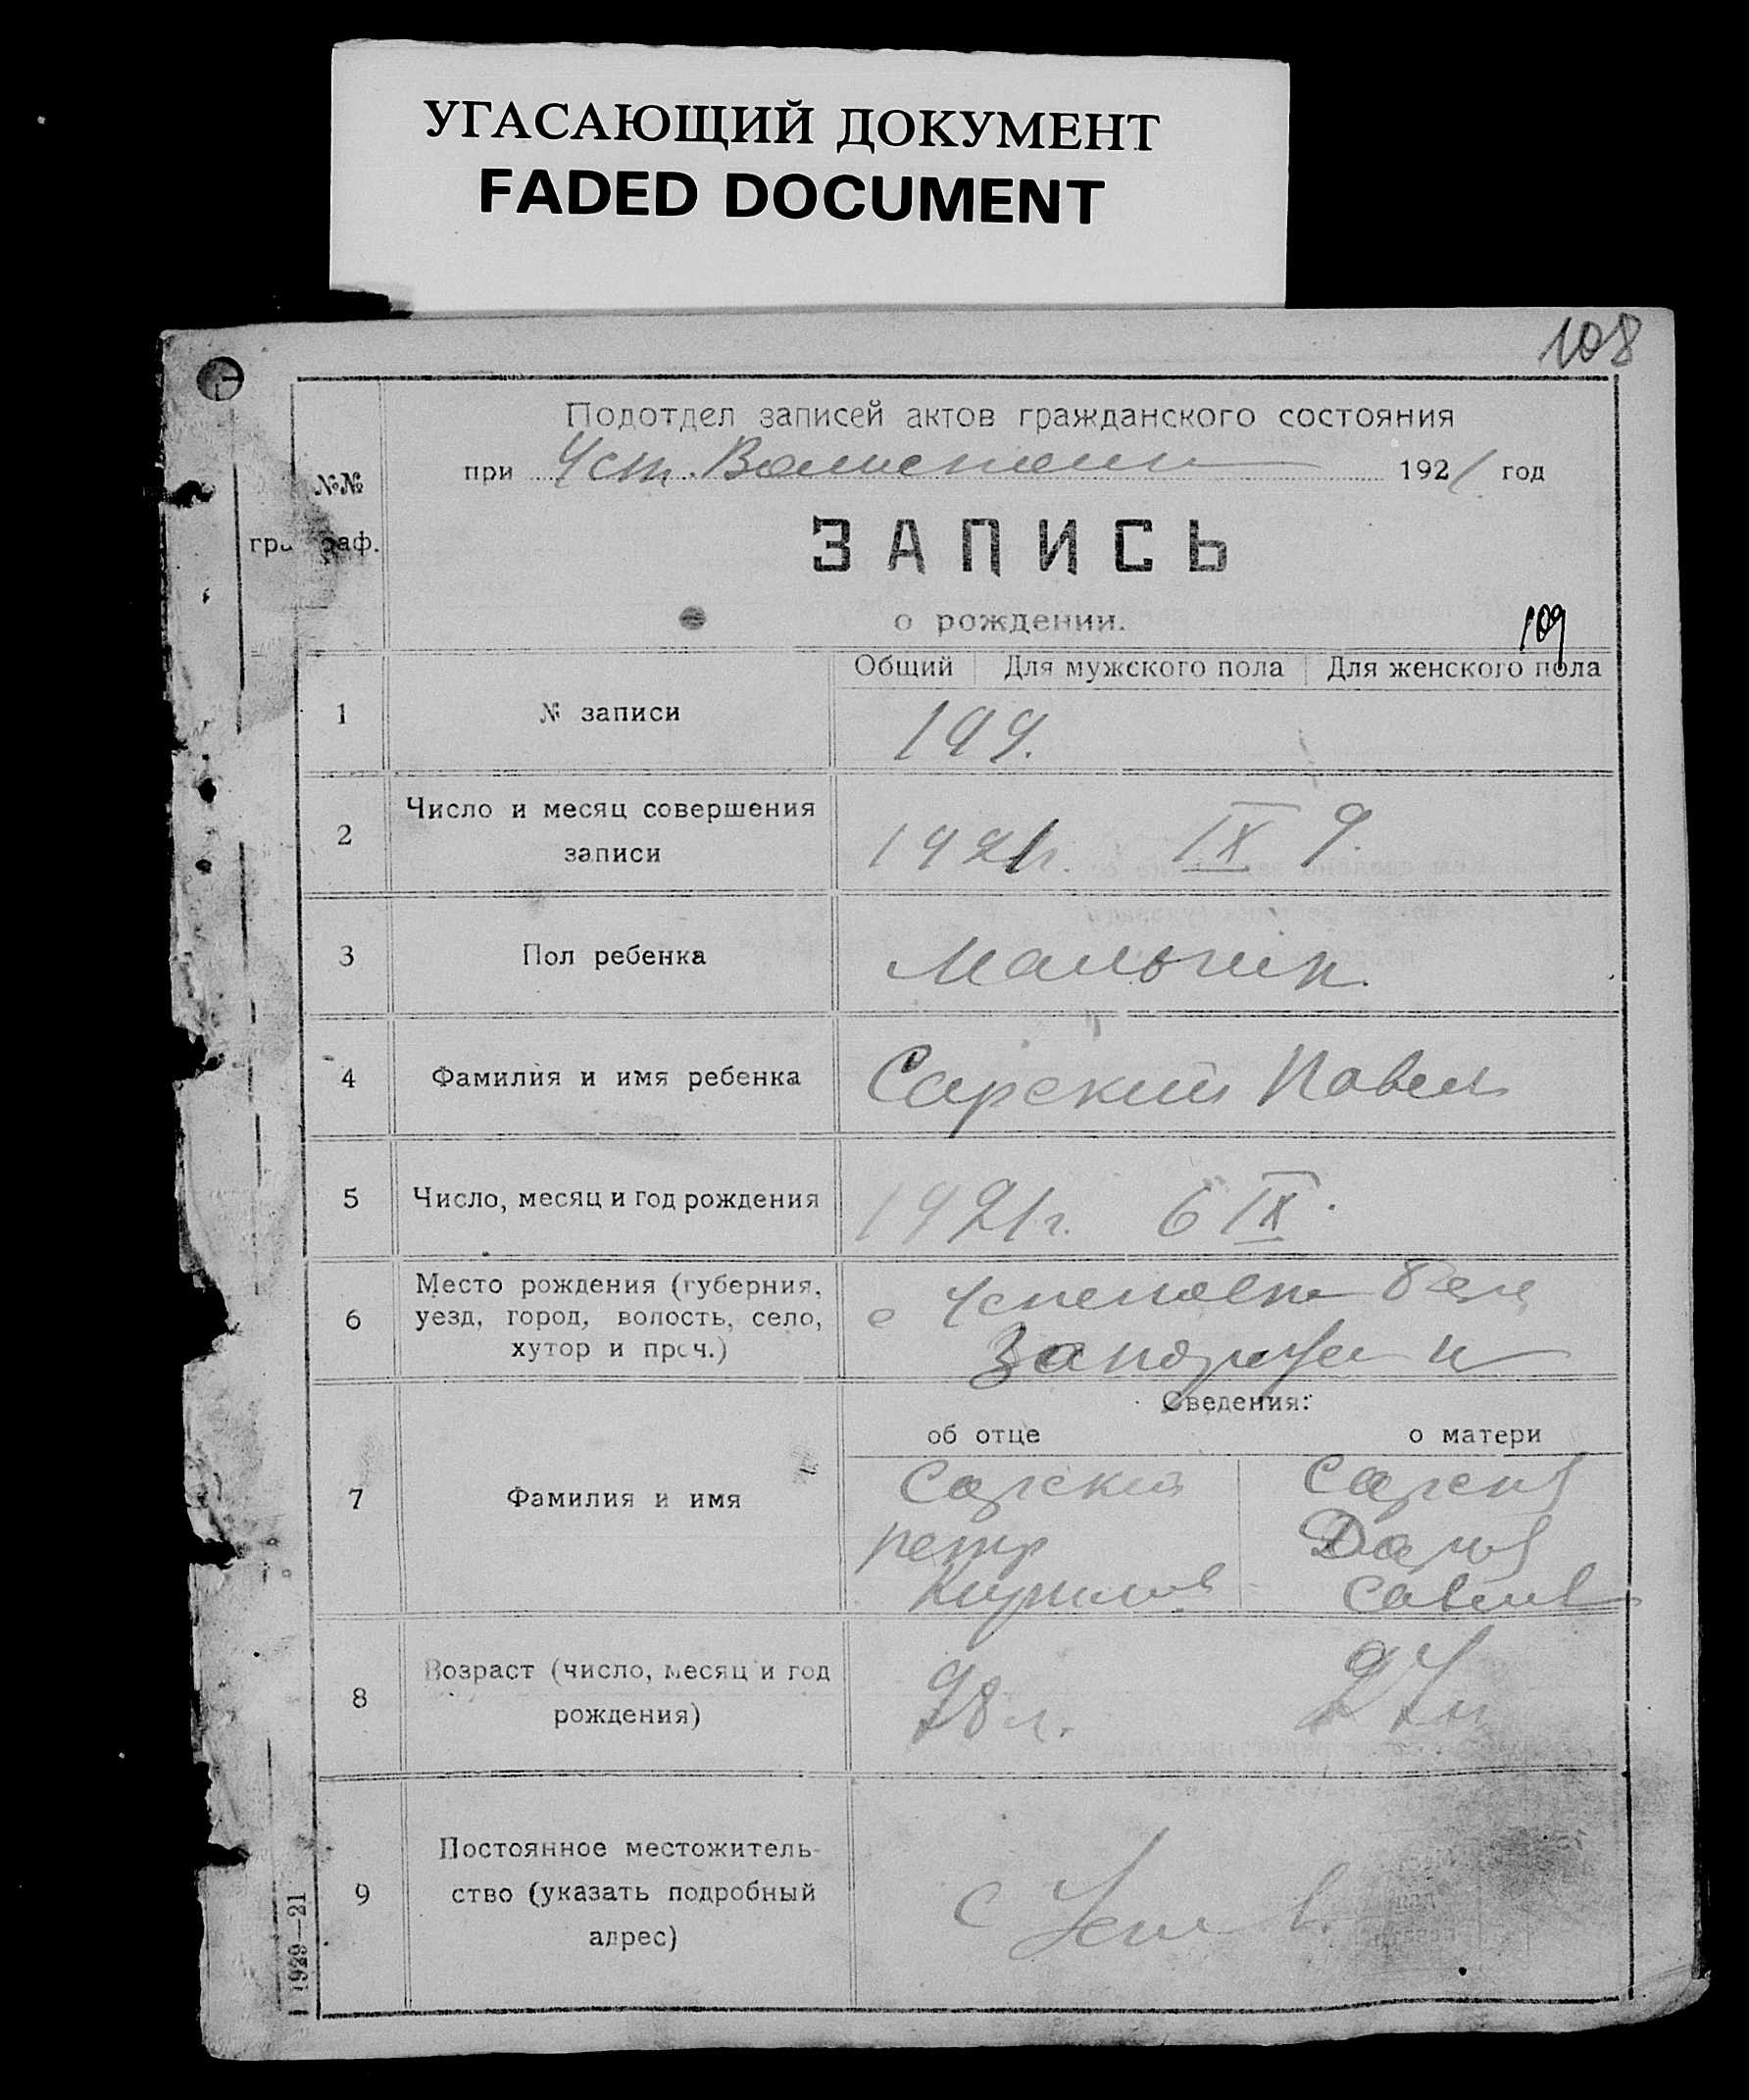 УГАСАЮЩИЙ ДОКУМЕНТ
FADED DOCUMENT
108
Подотдел записей актов гражданского состояния
при 1921 год
№№
граф.
ЗАПИСЬ
о рождении.
109
Общий Для мужского пола Для женского пола
1 № записи 199.
2 Число и месяц совершения
записи 1921г. IX 9.
3 Пол ребенка Мальчик.
4 Фамилия и имя ребенка Сарский Павел
5 Число, месяц и год рождения 1921г. 6 IX.
6 Место рождения (губерния,
уезд, город, волость, село,
хутор и проч.)
Сведения:
об отце о матери
7 Фамилия и имя
Сарский Сарская
Петр Дарья
8 Возраст (число, месяц и год
рождения) 28 л. 27 л
9 Постоянное местожитель-
ство (указать подробный
адрес) с
1929—21